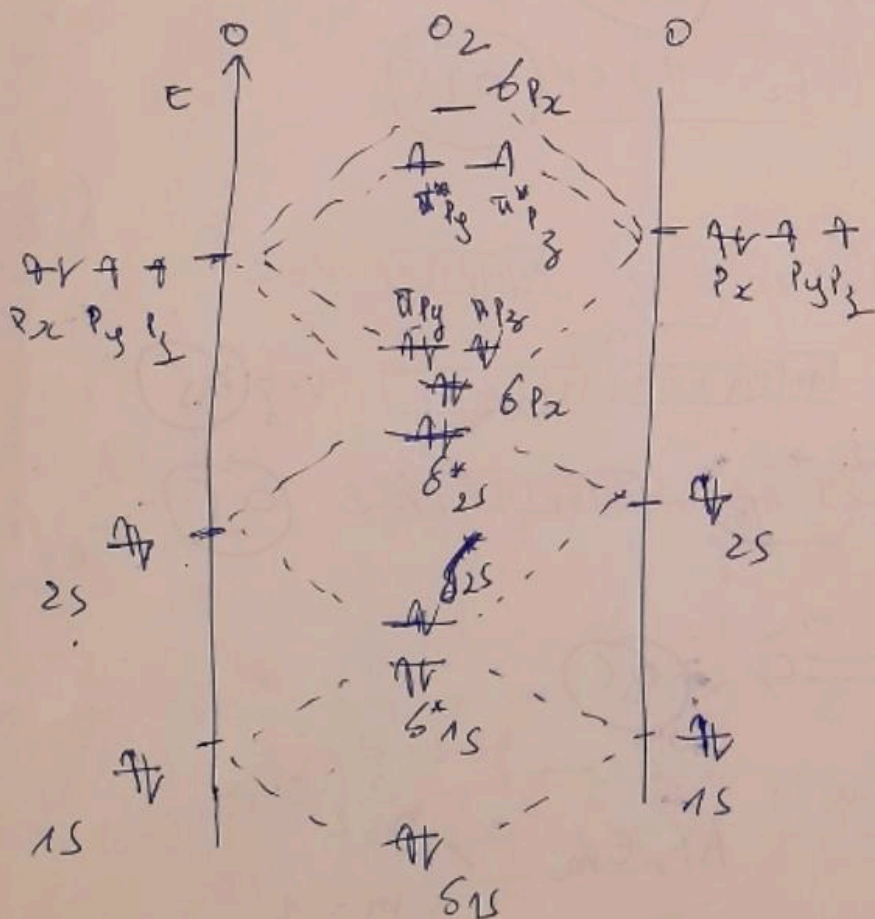 O O2 O
E
б Px
π*Py π*Pz
Px Py Pz
Px Py Pz
πPy πPz
б Px
б*2s
2s
2s
б2s
б*1s
1s
1s
б1s